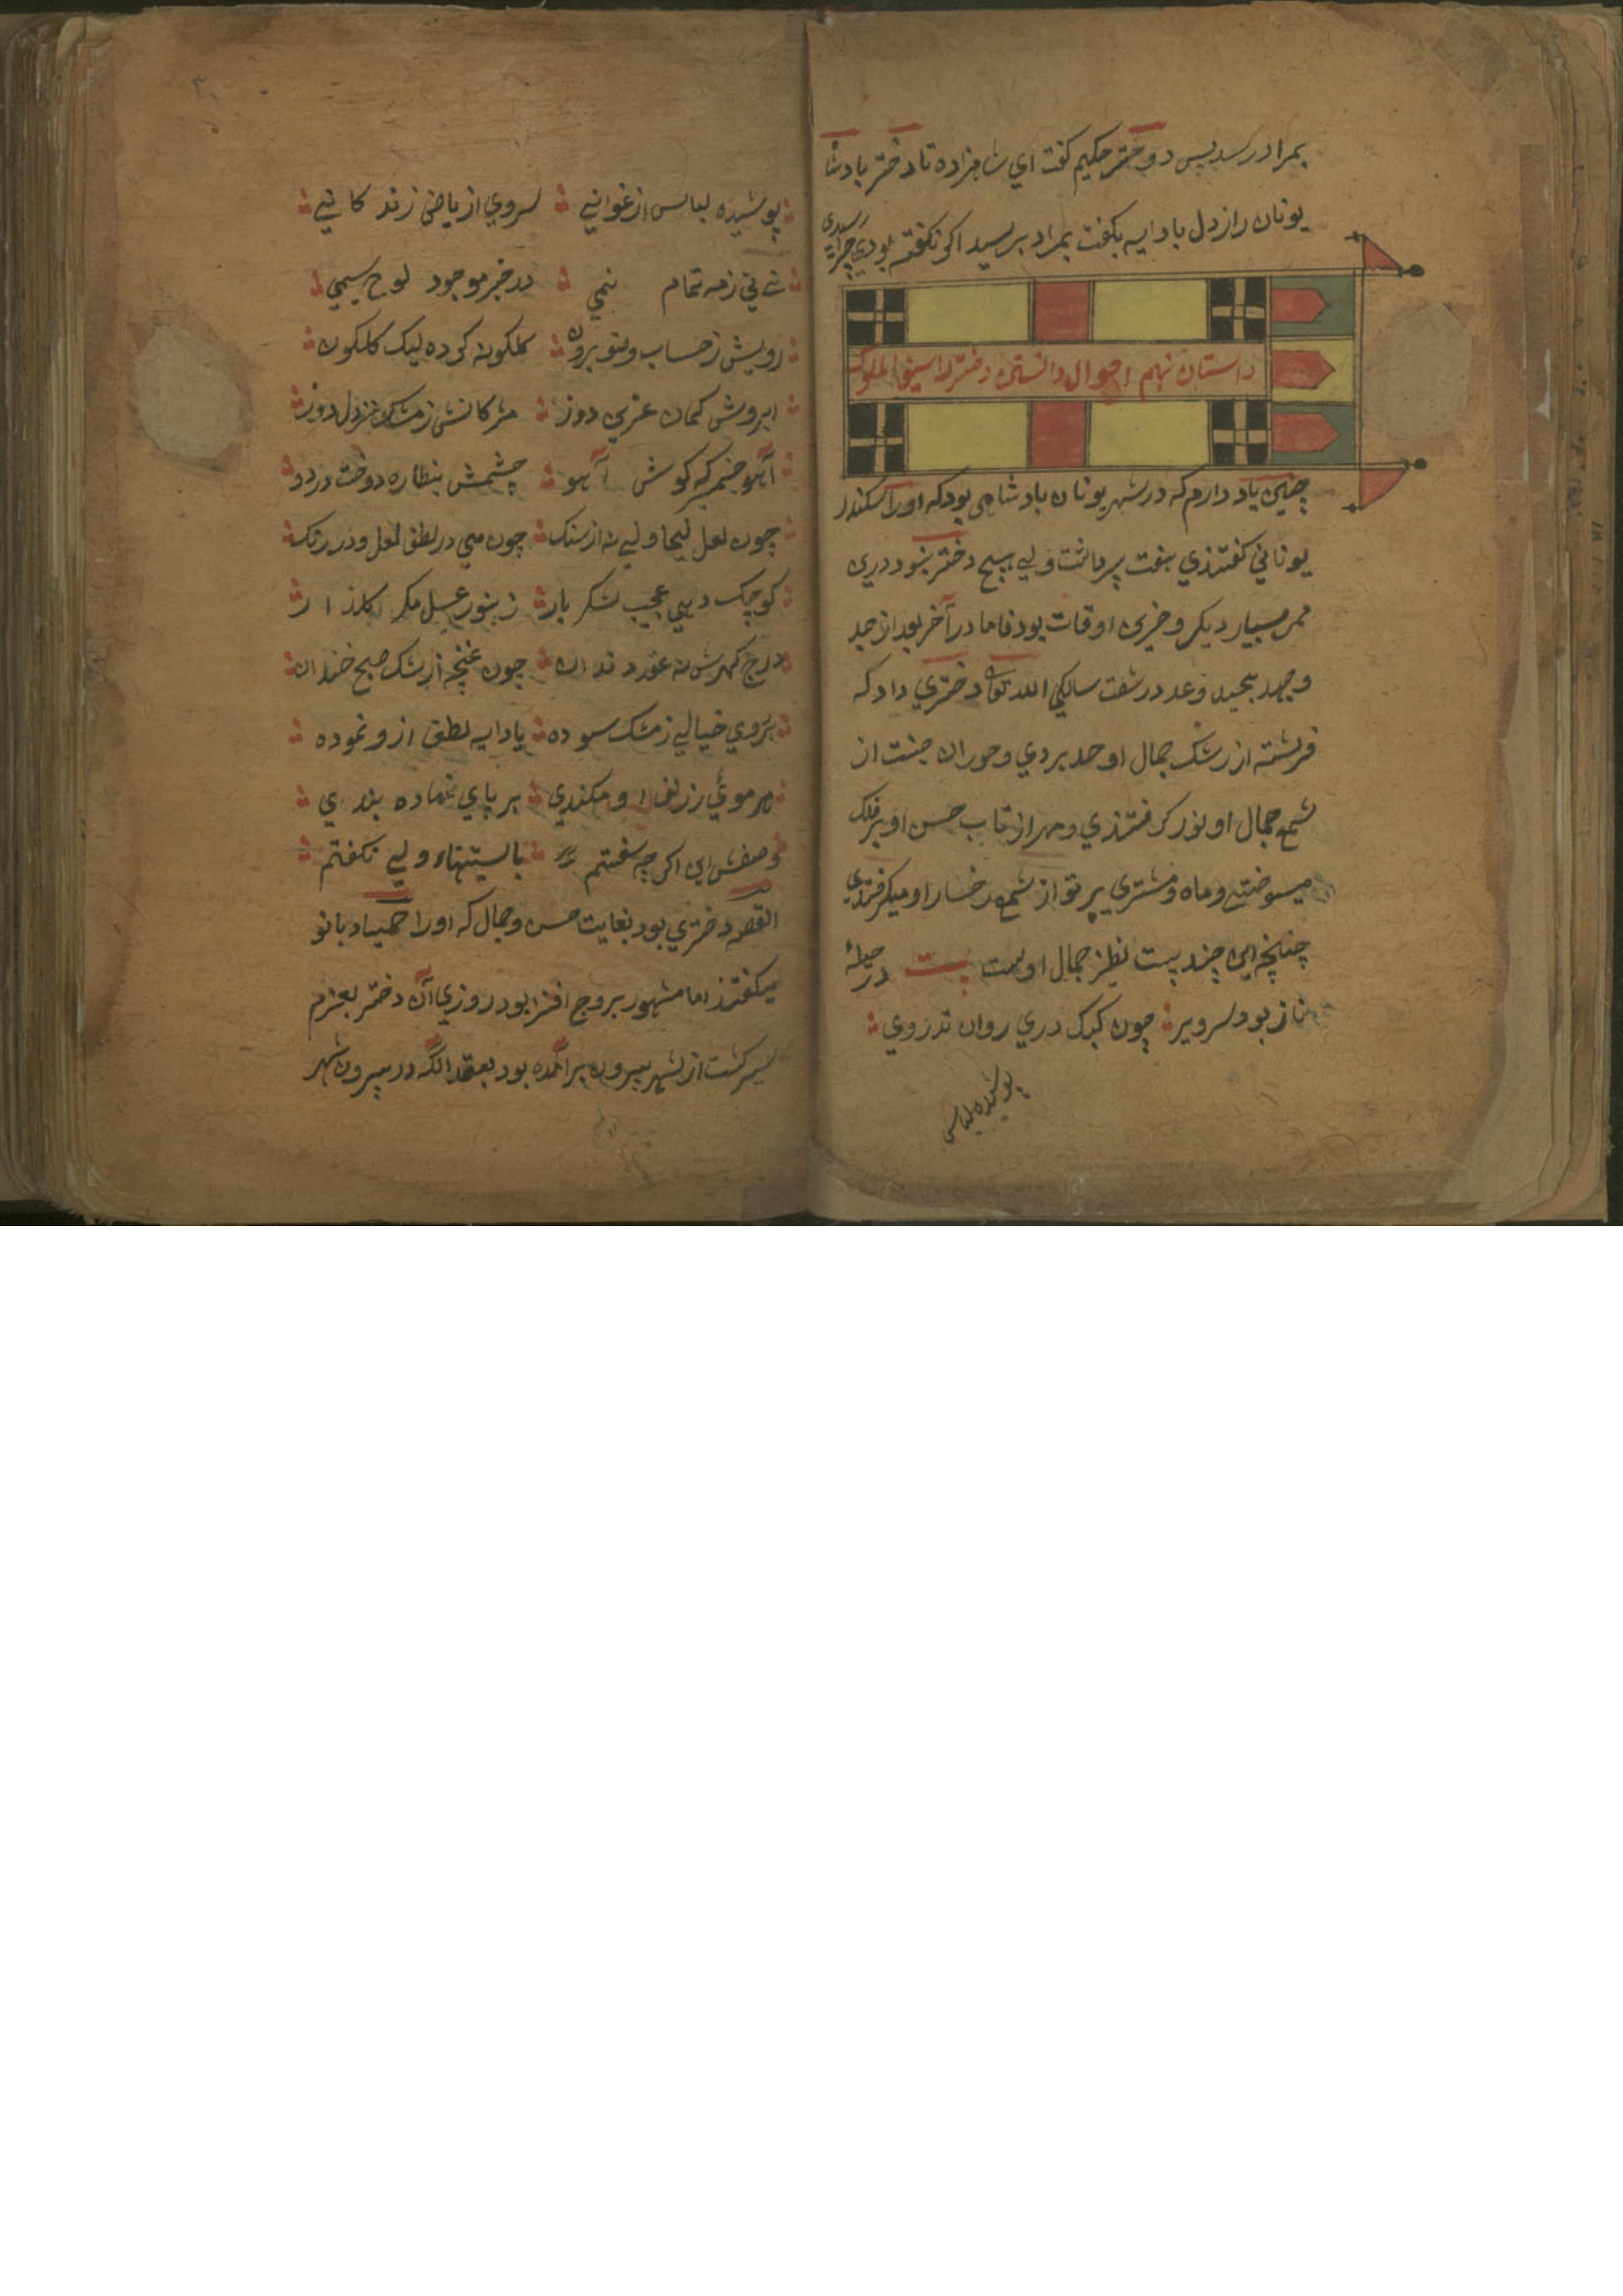 بمراد رسد پس دوختر حکیم گفت ای شاهزاده تا دختر بادشا
یونان راز دل با دایه بگفت بمراد برسید اگر نگفته بودی چرا رسیدی
داستان نهم احوال دانستن دختر سیف الملوک
چنین یاد دارم که در شهر یونان بادشاهی بود که او را سکندر
یونانی گفتندی هفت پسر داشت ولی هیچ دختر نبود درین
دیگر و حزین اوقات بود فاما در آخر بعد از جد
و جهد بیحد و عد در شصت سالگی الله تعالی دختری داد که
فرشته از رشک جمال او حسد بردی و حوران جنت از
شمع جمال او نور گرفتندی و مهر از تاب حسن او بر فلک
میسوختی و ماه و مشتری پرتو از شمع رخسار او میگرفتندی
چنانچه این چند بیت نظیر جمال اوست بیت در حیلهٔ
ناز بود سرو بر چون کبک دری روان تذروی
پوشیده لباس
پوشیده لباس ارغوانی سروی از ریاض زندگانی
زمه تمام نیمی در خیر موجود لوح سیمی
رویش ز حساب وصف برون گلگونه کرده لیک گلگون
ابرویش کمان دوز مژگانش ز مشک دل دوز
آهو آهو چشمش بنظاره دوخت در دو
چون لعل لبها ولی نه از سنگ چون می در لطف لعل و در رنگ
کوچک دهنی عجب شکر بار زنبور عسل مگر
درج گهرش نه عقد دندان چون غنچه از رشک صبح خندان
بر روی خیالی ز مشک سوده یا دایه لطف ازو نموده
هر موئی ز زلف او کمندی بر پای نهاده بندی
وصفش این اگر چه سفتم ولی نگفتم
القصه دختری بود بغایت حسن و جمال که او را بانو
میگفتند اما مشهور بروح افزا بود روزی آن دختر بعزم
سیر گشت از شهر بیرون برآمده بود بعد آنکه در بیرون شهر